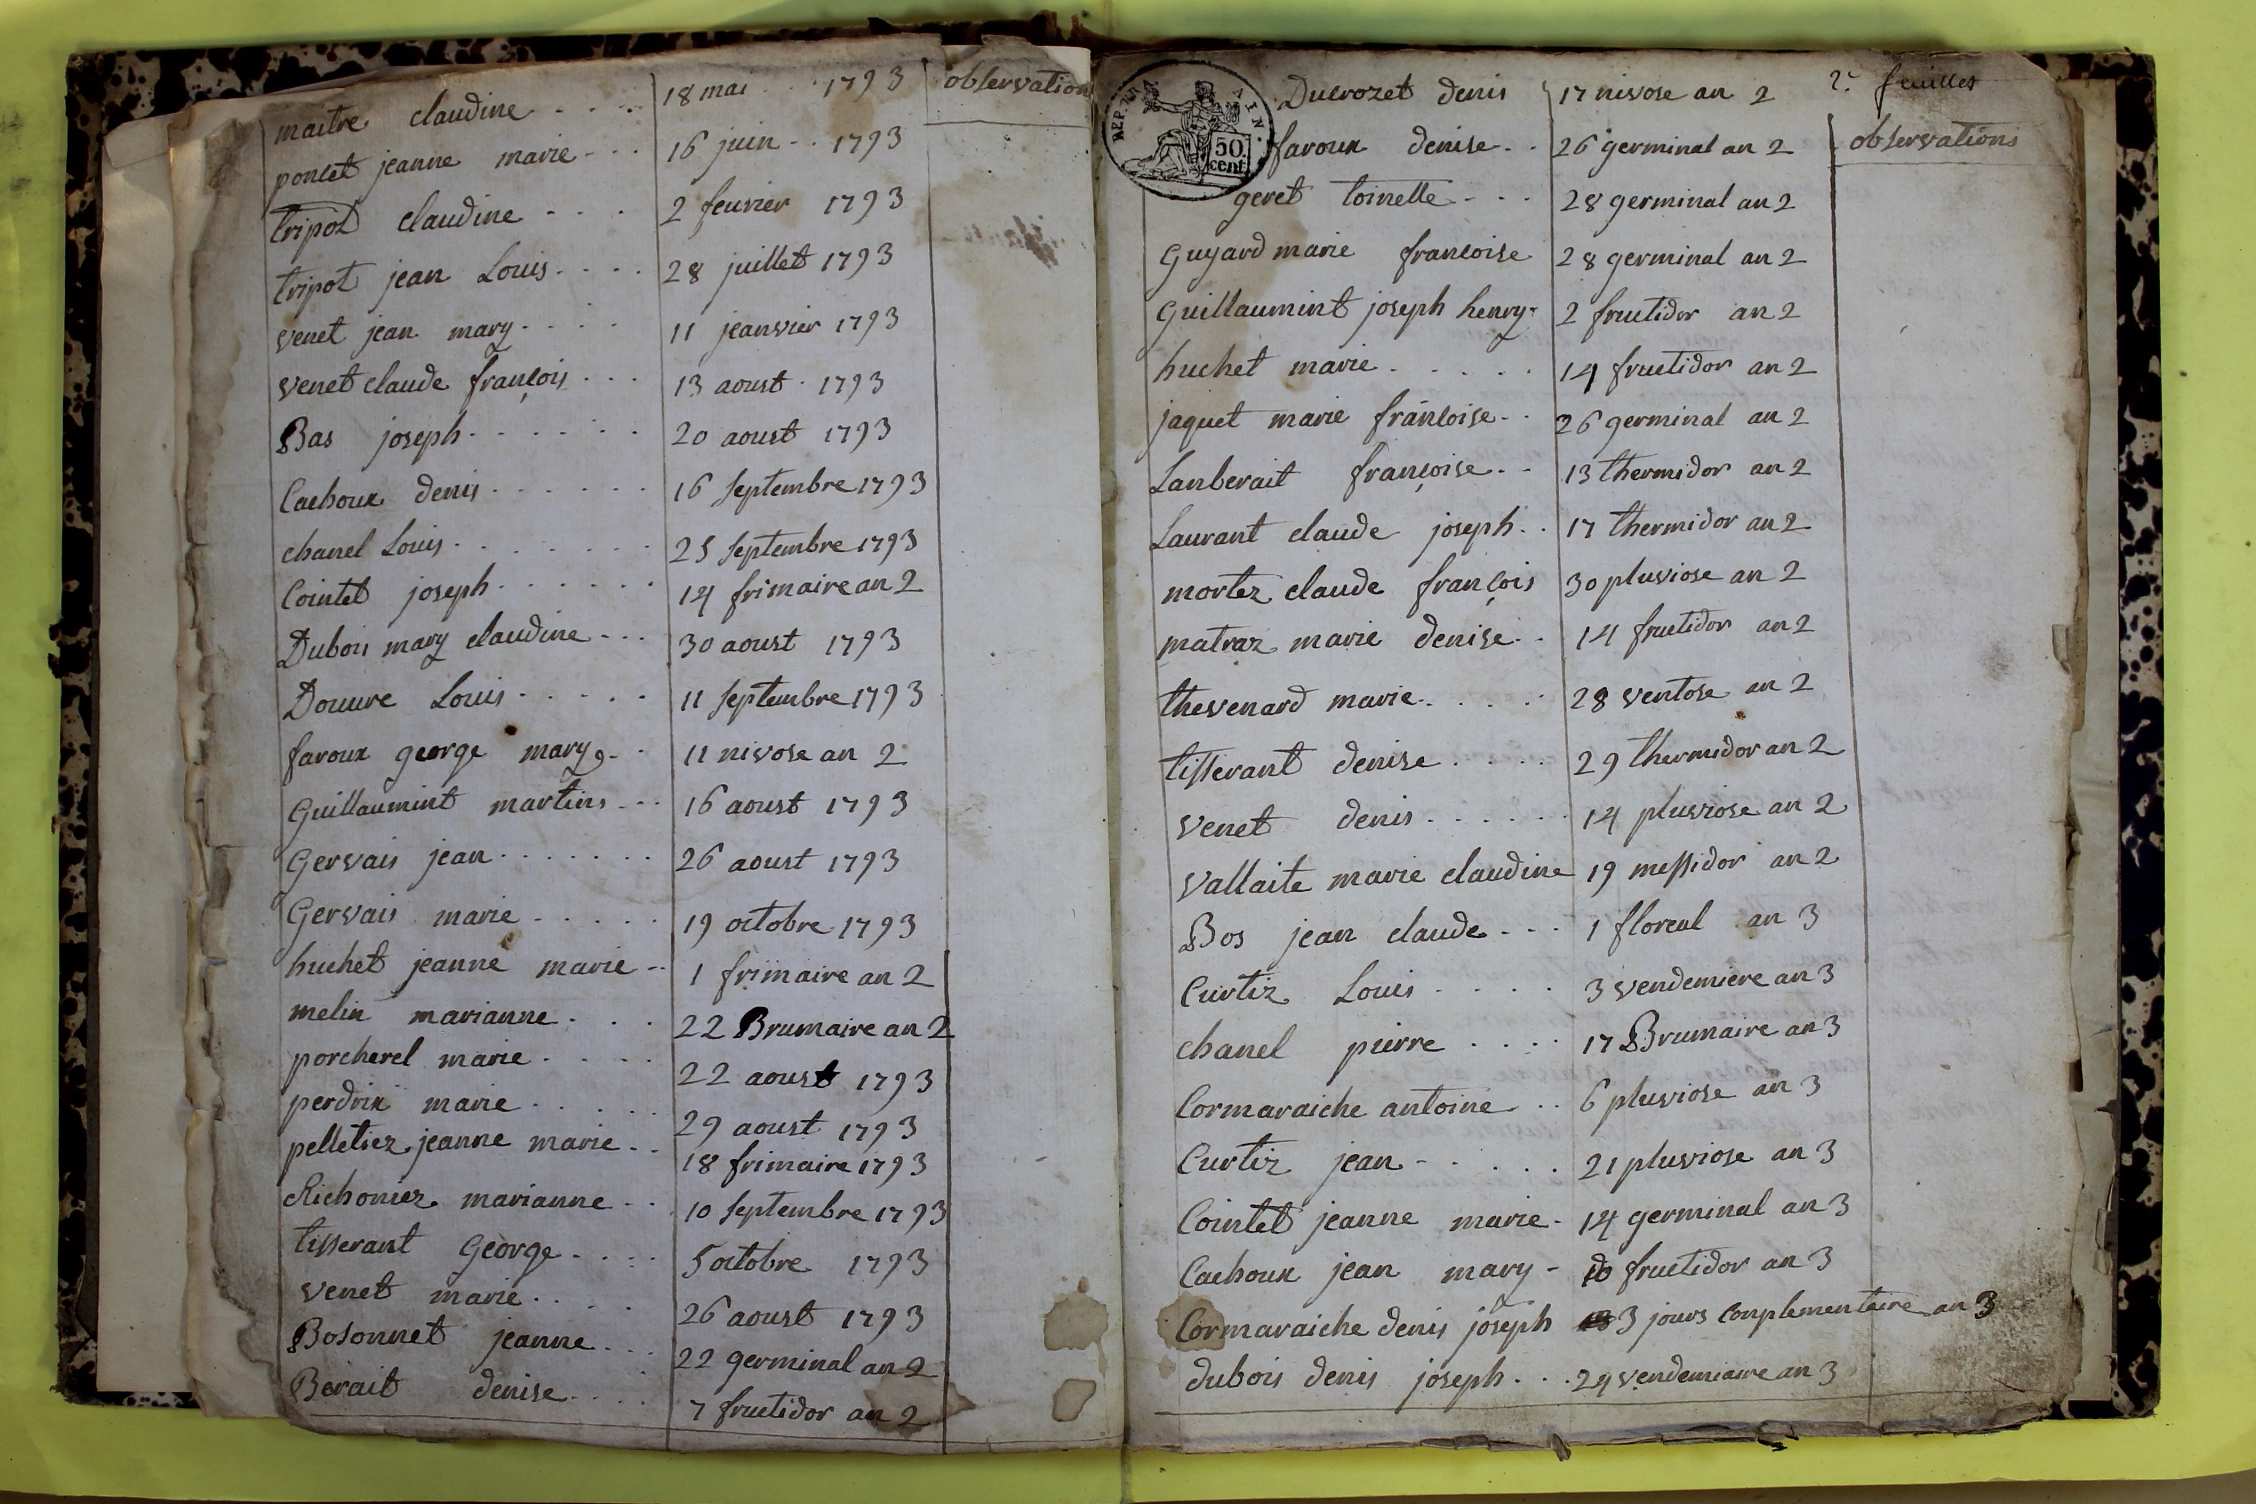 maitre claudine 18 mai 1793 observation
poncet jeanne marie 16 juin 1793
tripot claudine 2 feuvrier 1793
tripot jean Louis 28 juillet 1793
venet jean mary 11 jeanvier 1793
venet claude françois 13 aoust 1793
Bas joseph 20 aoust 1793
Cachoux denis 16 septembre 1793
chanel Louis 25 septembre 1793
Cointet joseph 14 frimaire an 2
Dubois mary claudine 30 aoust 1793
Douure Louis 11 septembre 1793
faroux george mary 11 nivose an 2
Guillaumint martins 16 aoust 1793
Gervais jean 26 aoust 1793
Gervais marie 19 octobre 1793
huchet jeanne marie 1 frimaire an 2
melin marianne 22 Brumaire an 2
porcherel marie 22 aoust 1793
perdrix marie 29 aoust 1793
pelletiez jeanne marie 18 frimaire 1793
Richoniez marianne 10 septembre 1793
tisserant George 5 octobre 1793
venet marie 26 aoust 1793
Bosonnet jeanne 22 germinal an 2
Berait denise 7 fructidor an 2
REP. 50 cent
2e feuilles
Ducrozet denis 17 nivose an 2
faroux denise 26 germinal an 2 observations
geret toinette 28 germinal an 2
Guyard marie francoise 28 germinal an 2
Guillaumint joseph henry 2 fructidor an 2
huchet marie 14 fructidor an 2
jaquet marie francoise 26 germinal an 2
Lanberait françoise 13 thermidor an 2
Laurant claude joseph 17 thermidor an 2
mortez claude françois 30 pluviose an 2
matraz marie denise 14 fructidor an 2
thevenard marie 28 ventose an 2
tisserant denise 29 thermidor an 2
venet denis 14 pluviose an 2
Vallaite marie claudine 19 messidor an 2
Bos jean claude 1 floreal an 3
Curtiz Louis 3 vendemiere an 3
chanel pierre 17 Brumaire an 3
Cormaraiche antoine 6 pluviose an 3
Curtiz jean 21 pluviose an 3
Cointet jeanne marie 14 germinal an 3
Cachoux jean mary 10 fructidor an 3
Cormaraiche denis joseph 3 jours conplementaire an 3
dubois denis joseph 24 vendemiaire an 3